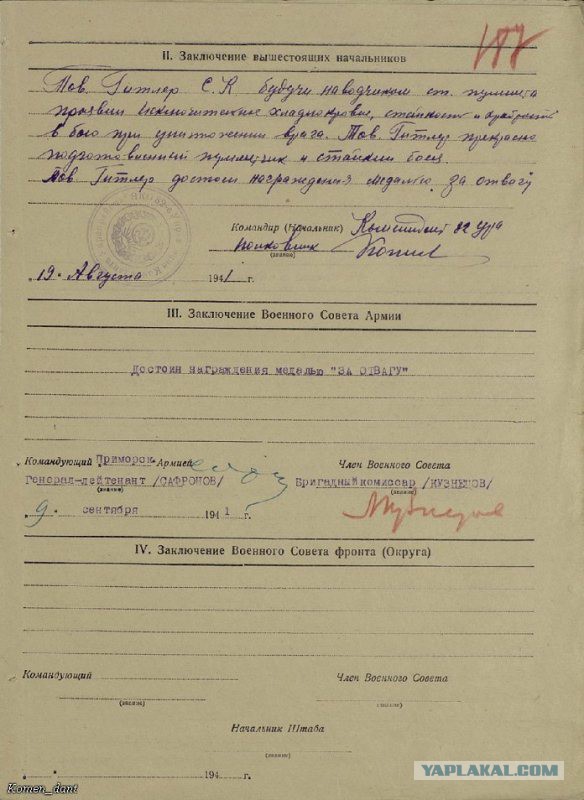 II. Заключение вышестоящих начальников
Тов. Гитлер С.К. будучи наводчиком ст. пулемета
проявил исключительное хладнокровие, стойкость и храбрость
в бою при уничтожении врага. Тов. Гитлер прекрасно
подготовленный пулеметчик и стойкий боец.
Тов. Гитлер достоин награждения медалью за отвагу
Командир (Начальник) Комендант 82 Ура
полковник
(звание)
19. Августа 1941 г.
III. Заключение Военного Совета Армии
Достоин награждения медалью "ЗА ОТВАГУ"
Командующий Приморск. Армией
Член Военного Совета
Генерал-лейтенант /САФРОНОВ/
Бригадный комиссар /КУЗНЕЦОВ/
(звание)
(звание)
9. сентября 1941 г.
IV. Заключение Военного Совета фронта (Округа)
Командующий
Член Военного Совета
(звание)
(звание)
Начальник Штаба
(звание)
194 г.
YAPLAKAL.COM
Komen_dant